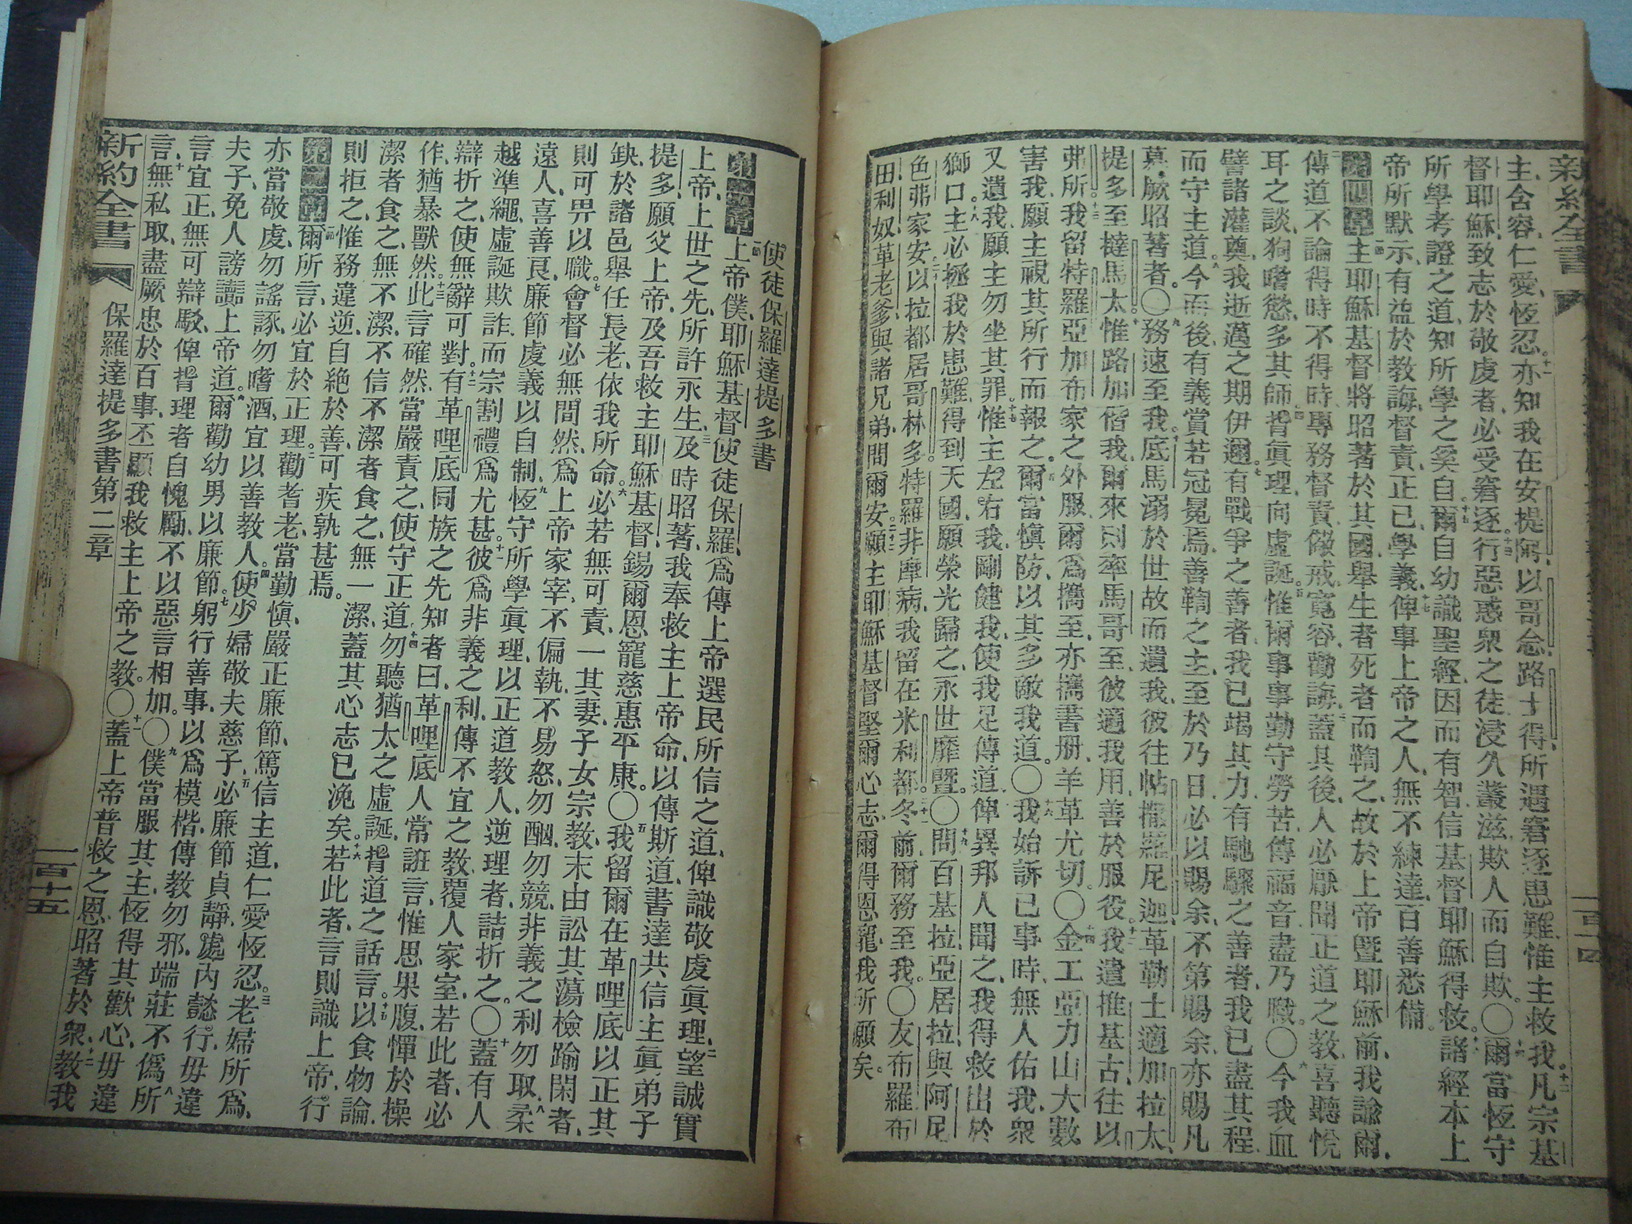 新約全書
一百十四
主、含容、仁愛、恆忍、亦知我在安提阿、以哥念、路士得、所遇窘逐患難、惟主救我、凡宗基
督耶穌、致志於敬虔者、必受窘逐、行惡惑衆之徒、浸久叢滋、欺人而自欺。〇爾當恆守
所學考證之道、知所學之矣、自爾自幼識聖經、因而有智、信基督耶穌得救、諸經本上
帝所默示、有益於教誨督責、正己學義、俾事上帝之人、無不練達、百善悉備。
第四章 主耶穌基督將昭著於其國、舉生者死者而鞫之、故於上帝曁耶穌前、我諭爾、
傳道不論得時不得時、專務督責、儆戒、寬容、勸誨、蓋其後人必厭聞正道之教、喜聽悅
耳之談、狥嗜慾、多其師、背眞理、向虛誕、惟爾事事勤守勞苦、傳福音、盡乃職。〇今我血
譬諸灌奠、我逝邁之期伊邇、有戰爭之善者、我已竭其力、有馳驟之善者、我已盡其程、
而守主道、今而後有義賞、若冠冕焉、善鞫之主、至於乃日、必以賜余、不第賜余、亦賜凡
慕厥昭著者。〇務速至我、底馬溺於世故而遺我、彼往帖撒羅尼迦、革勒士適加拉太、
提多至撻馬太、惟路加偕我、爾來、則率馬哥至、彼適我用、善於服役、我遣推基古往以
弗所、我留特羅亞加布家之外服、爾爲攜至、亦攜書册、羊革尤切、〇金工亞力山大數
害我、願主視其所行而報之、爾當愼防、以其多敵我道。〇我始訴己事時、無人佑我、衆
又遺我、願主勿坐其罪、惟主左右我、剛健我、使我足傳道、俾異邦人聞之、我得救出於
獅口、主必拯我於患難、得到天國、願榮光歸之、永世靡曁。〇問百基拉、亞居拉、與阿尼
色弗家安、以拉都居哥林多、特羅非摩病、我留在米利都、冬前爾務至我。〇友布羅、布
田利奴、革老爹、與諸兄弟問爾安、願主耶穌基督堅爾心志、爾得恩寵、我所願矣。
使徒保羅達提多書
第一章 上帝僕、耶穌基督使徒保羅、爲傳上帝選民所信之道、俾識敬虔眞理、望誠實
上帝、上世之先、所許永生、及時昭著、我奉救主上帝命、以傳斯道、書達共信主眞弟子
提多、願父上帝、及吾救主耶穌基督、錫爾恩寵慈惠平康。〇我留爾在革哩底、以正其
缺、於諸邑舉任長老、依我所命、必若無可責、一其妻、子女宗教、末由訟其蕩檢踰閑者、
則可畀以職、會督必無間然、爲上帝家宰、不偏執、不易怒、勿酗、勿競、非義之利勿取、柔
遠人、喜善良、廉節虔義以自制、恆守所學眞理、以正道教人、逆理者、詰折之。〇蓋有人
越準繩、虛誕欺詐、而宗割禮爲尤甚、彼爲非義之利、傳不宜之教、覆人家室、若此者、必
辯折之、使無辭可對。有革哩底同族之先知者曰、革哩底人常誑言、惟思果腹、憚於操
作、猶暴獸然、此言確然、當嚴責之、使守正道、勿聽猶太之虛誕、背道之話言、以食物論、
潔者食之、無不潔、不信不潔者食之、無一潔、蓋其心志已浼矣、若此者、言則識上帝、行
則拒之、惟務違逆、自絶於善、可疾孰甚焉。
第二章 爾所言、必宜於正理、勸耆老、當勤愼嚴正廉節、篤信主道、仁愛恆忍。老婦所爲、
亦當敬虔、勿謠諑、勿嗜酒、宜以善教人。使少婦敬夫慈子、必廉節貞靜、處內懿行、毋違
夫子、免人謗讟上帝道。爾勸幼男以廉節、躬行善事、以爲模楷、傳教勿邪、端莊不僞、所
言宜正、無可辯駁、俾背理者自愧勵、不以惡言相加。〇僕當服其主、恆得其歡心、毋違
言、無私取、盡厥忠於百事、丕顯我救主上帝之教。〇蓋上帝普救之恩、昭著於衆、教我
新約全書 保羅達提多書第二章
一百十五